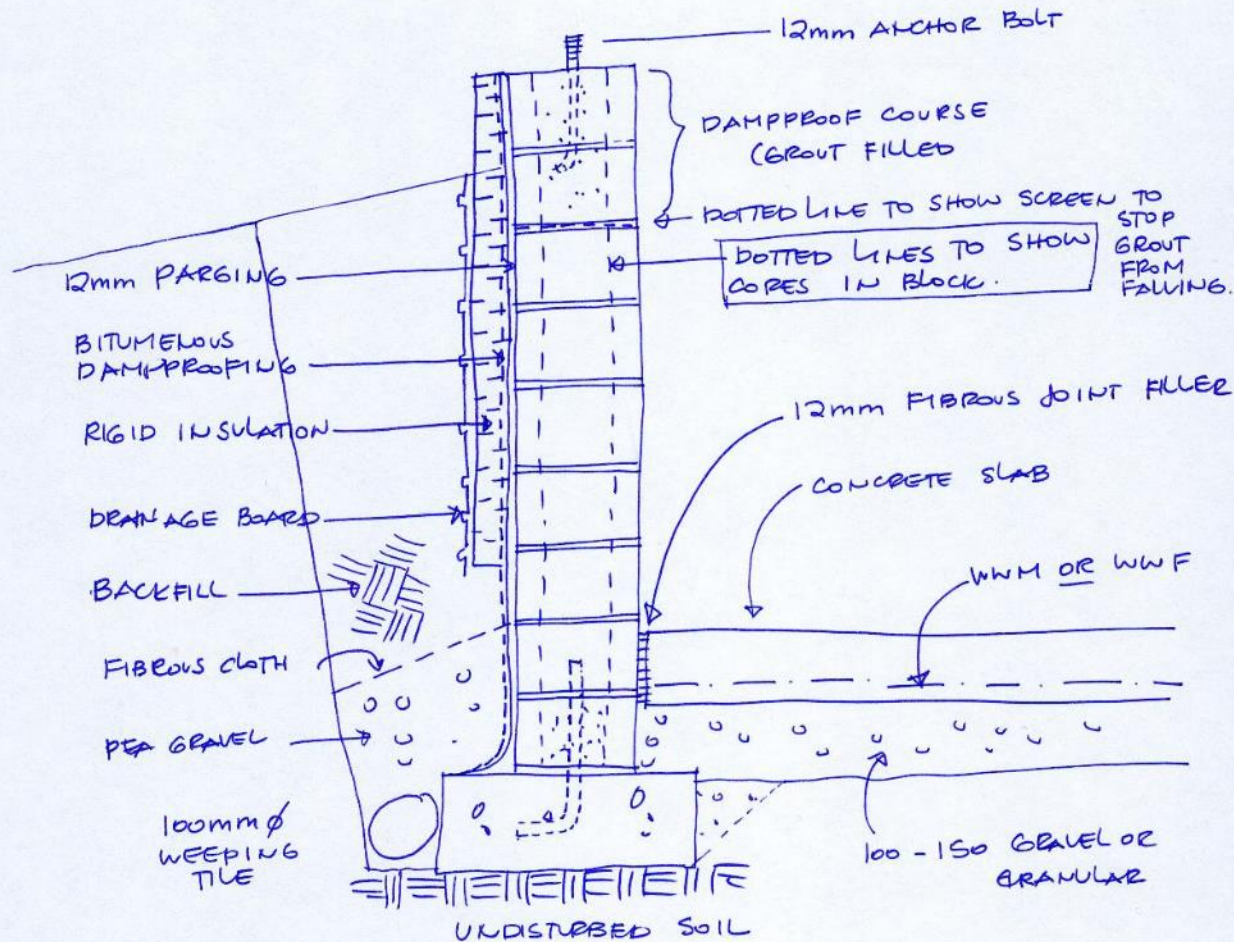 12mm ANCHOR BOLT
DAMPPROOF COURSE
(GROUT FILLED
DOTTED LINE TO SHOW SCREEN TO
STOP
GROUT
FROM
FALLING.
DOTTED LINES TO SHOW
CORES IN BLOCK.
12mm PARGING
BITUMENOUS
DAMPPROOFING
RIGID INSULATION
DRAINAGE BOARD
BACKFILL
FIBROUS CLOTH
PEA GRAVEL
100mm φ
WEEPING
TILE
12mm FIBROUS JOINT FILLER
CONCRETE SLAB
WWM OR WWF
100-150 GRAVEL OR
GRANULAR
UNDISTURBED SOIL